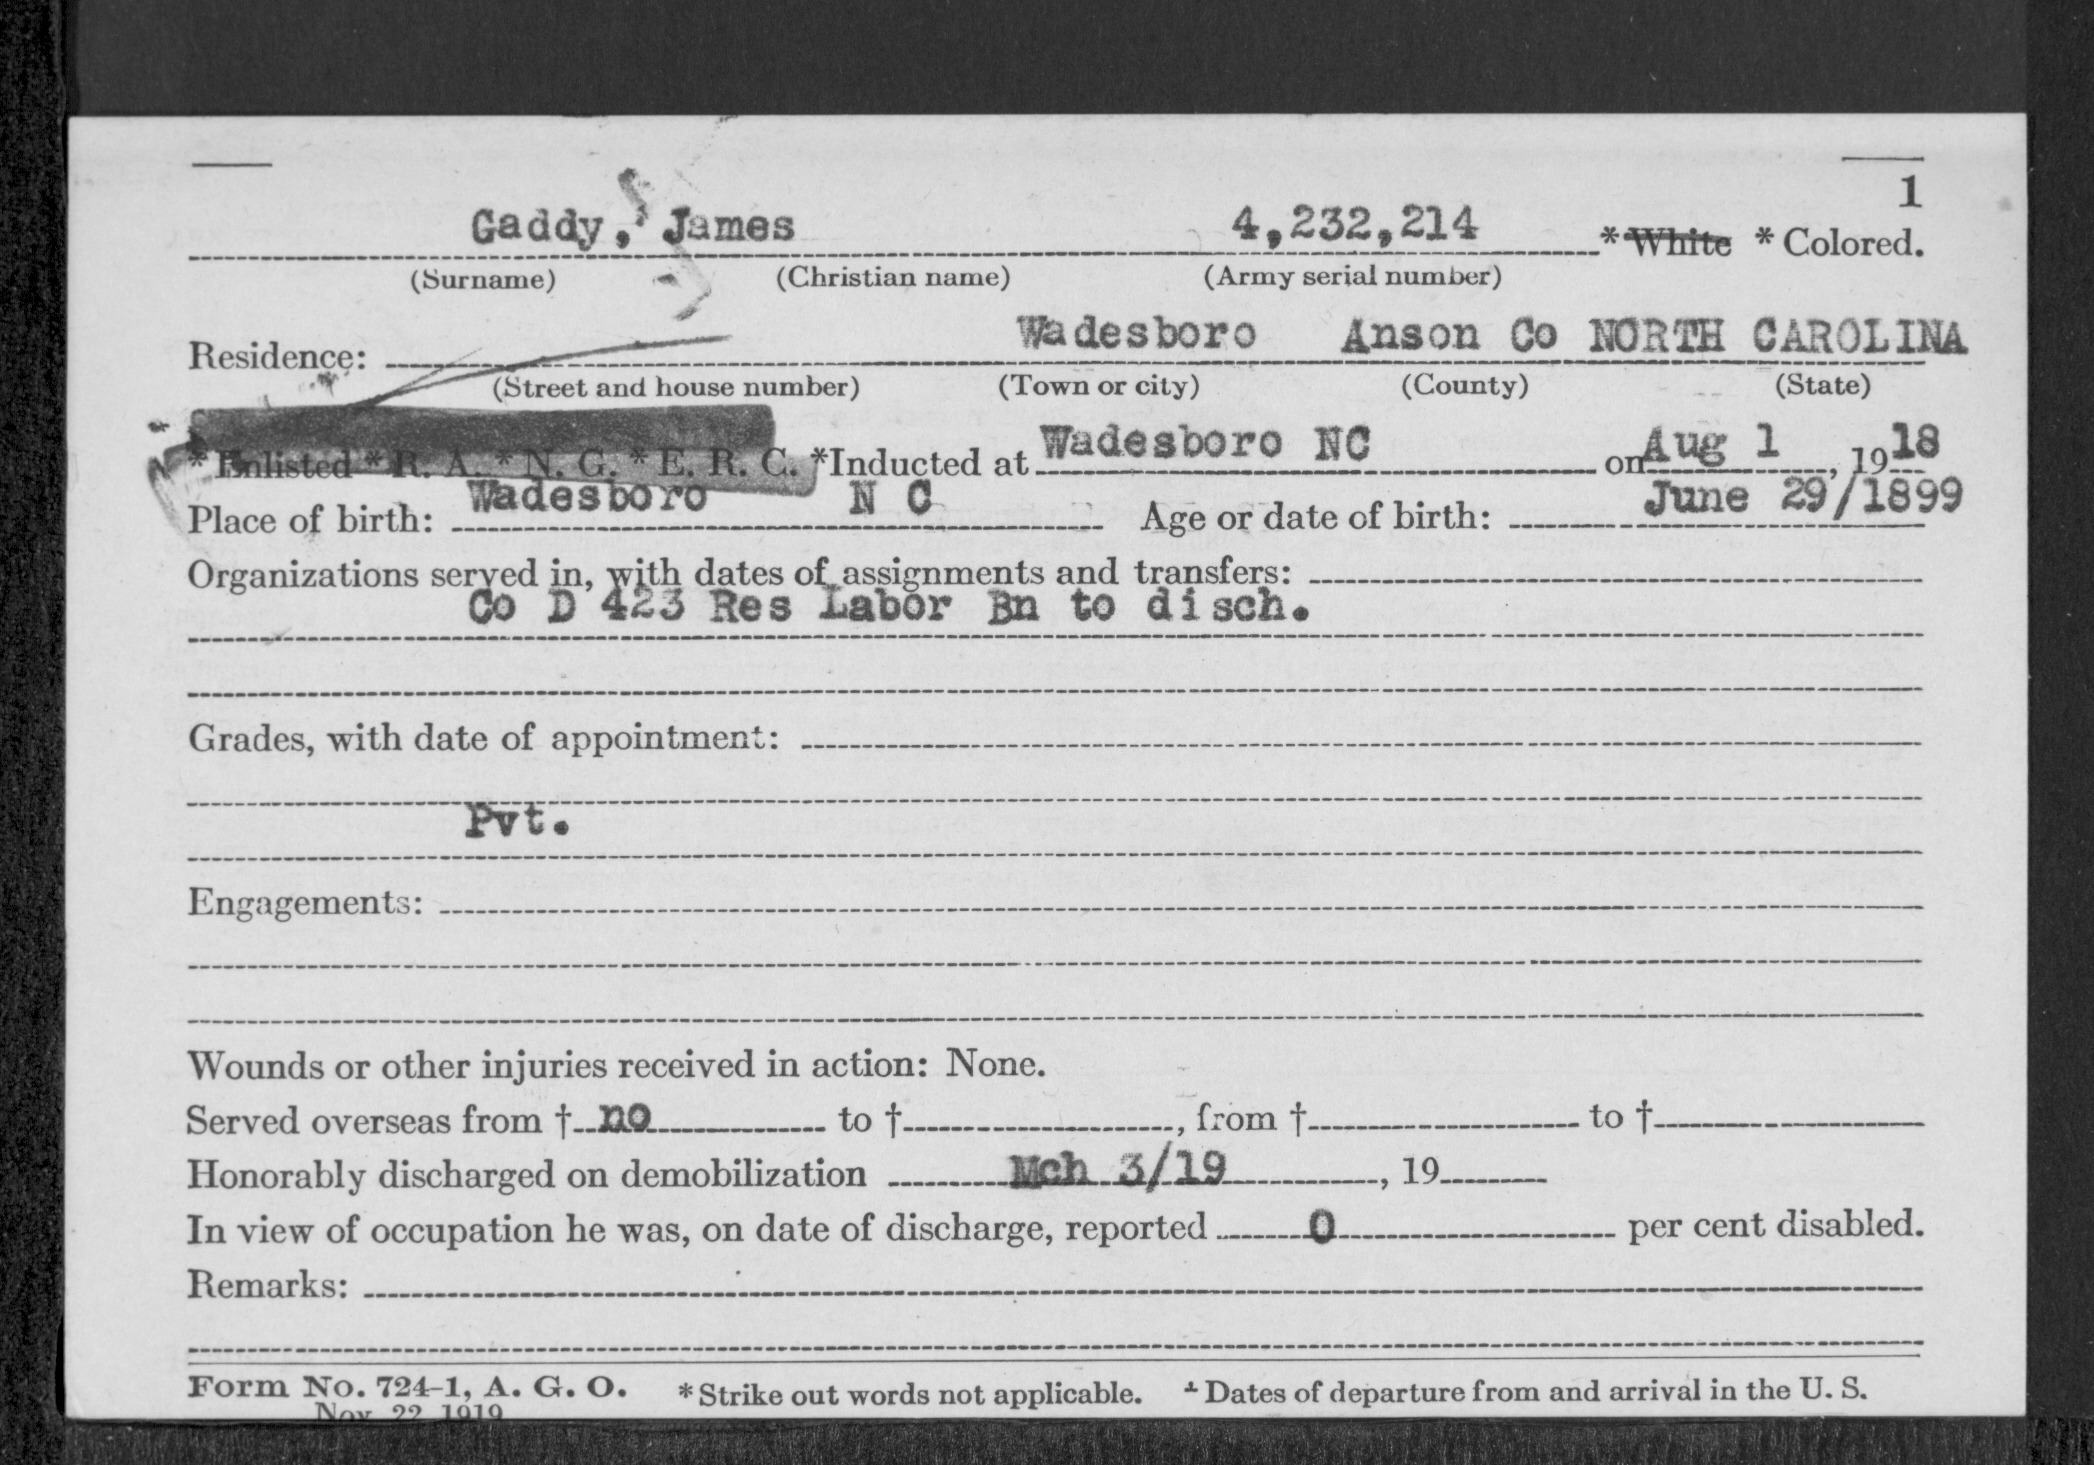 1
Gaddy, James 4,232,214 *White *Colored.
(Surname) (Christian name) (Army serial number)
Residence: Wadesboro Anson Co NORTH CAROLINA
(Street and house number) (Town or city) (County) (State)
*Enlisted *R. A. *N. G. *E. R. C. *Inducted at Wadesboro NC on Aug 1, 1918
Place of birth: Wadesboro N C Age or date of birth: June 29/1899
Organizations served in, with dates of assignments and transfers:
Co D 423 Res Labor Bn to disch.
Grades, with date of appointment:
Pvt.
Engagements:
Wounds or other injuries received in action: None.
Served overseas from † no to †, from † to †
Honorably discharged on demobilization Mch 3/19, 19
In view of occupation he was, on date of discharge, reported 0 per cent disabled.
Remarks:
Form No. 724-1, A. G. O. *Strike out words not applicable. † Dates of departure from and arrival in the U. S.
Nov. 22, 1919